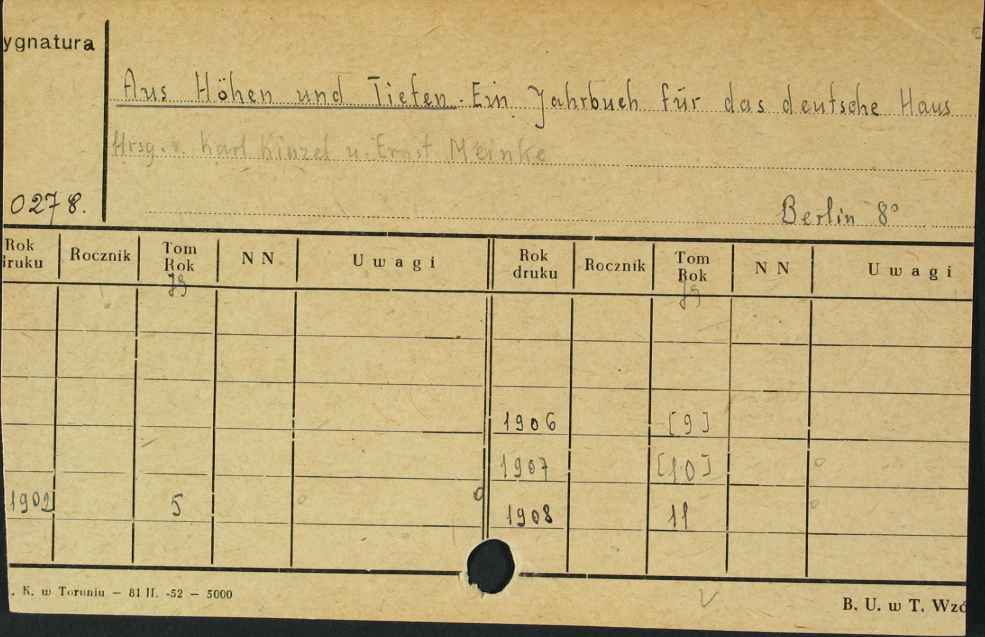 ygnatura
Aus Höhen und Tiefen. Ein Jahrbuch für das deutsche Haus
Hrsg. v. Karl Kinzel u. Ernst Meinke
0278.
Berlin 8°
Rok druku Rocznik Tom Rok NN Uwagi Rok druku Rocznik Tom Rok NN Uwagi
Jg Jg
1906 [9]
1907 [10]
1902 5
1908 11
. K. w Toruniu — 81 II. -52 — 5000
B. U. w T. Wzó